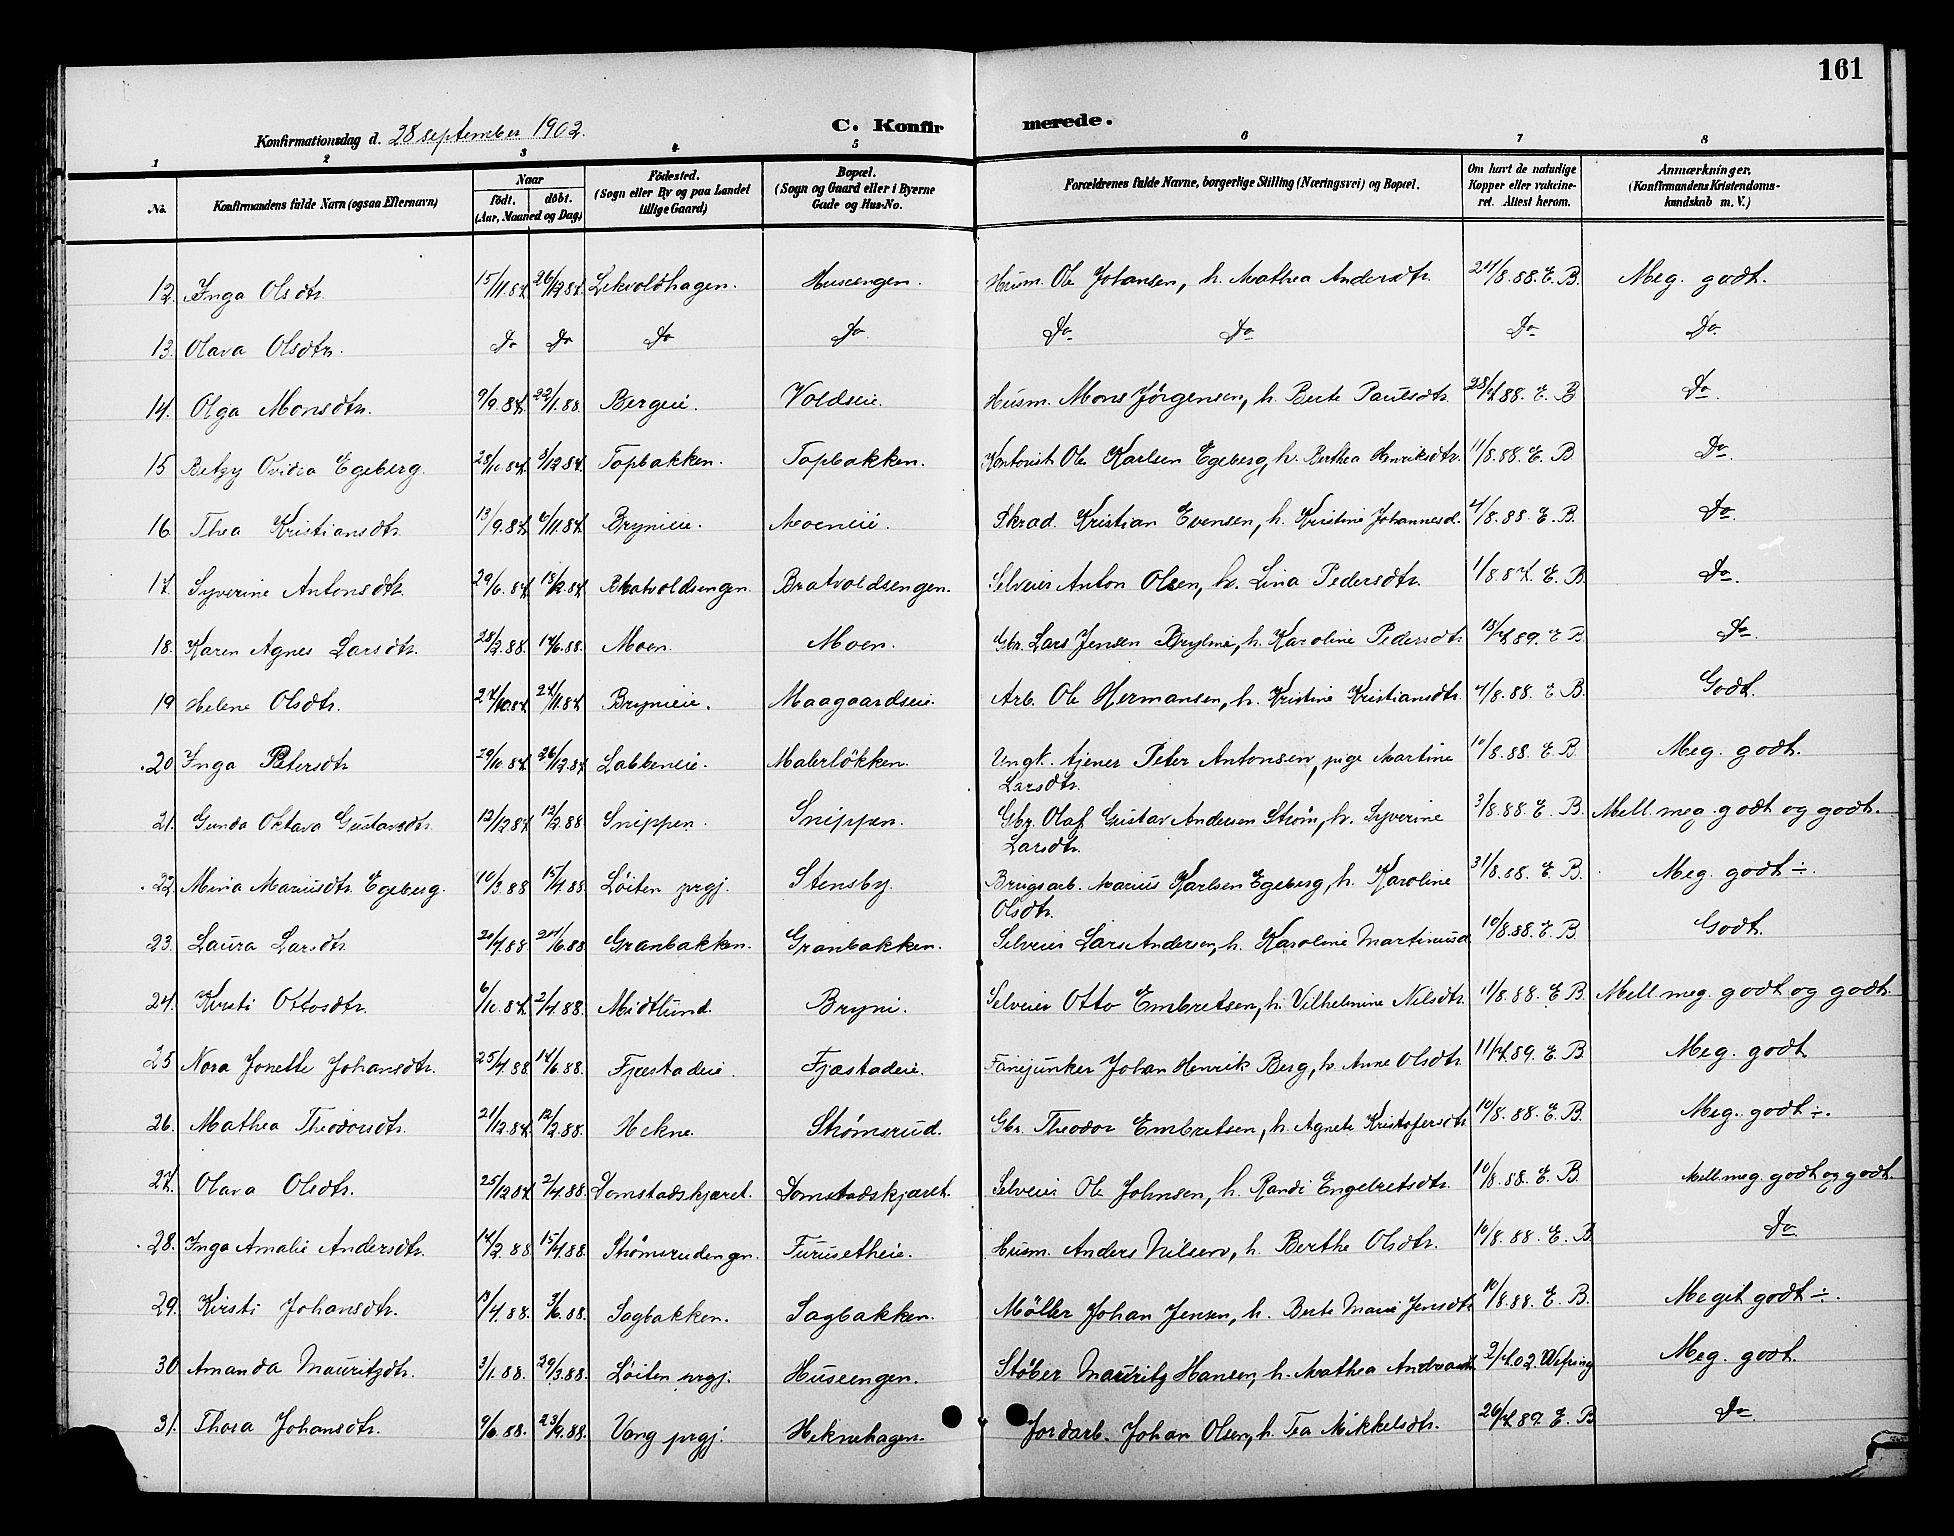 161
Konfirmationsdag d. 28 september 1902.
C. Konfirmerede.
1 2 3 4 5 6 7 8
No. Konfirmandens fulde Navn (ogsaa Efternavn) Naar født. døbt. (Aar, Maaned og Dag) Fødested. (Sogn eller By og paa Landet tillige Gaard) Bopæl. (Sogn og Gaard eller i Byerne Gade og Hus-No. Forældrenes fulde Navne, borgerlige Stilling (Næringsvei) og Bopæl. Om havt de naturlige Kopper eller vakcineret. Attest herom. Anmærkninger, (Konfirmandens Kristendomskundskab m. V.)
12. Inga Olsdtr. 15/11.87. 26/12.87. Lekvoldhagen. Huseengen. Husm. Ole Johansen, h. Mathea Andersdtr. 24/8.88. E. B. Meg. godt.
13. Olava Olsdtr. Do Do Do Do. Do Do Do Do.
14. Olga Monsdtr. 9/9.87. 22/1.88. Bergeie. Voldseie. Husm. Mons Jørgensen, h. Berte Paulsdtr. 28/7.88. E. B Do.
15. Betzy Ovidia Egeberg. 28/10.87. 8/12.87. Topbakken. Topbakken. Kontorist Ole Karlsen Egeberg, h. Berthea Henriksdtr. 11/8.88. E. B Do.
16. Thea Kristiansdtr. 13/9.87. 6/11.87. Brynieie. Moeneie. Skrad. Kristian Evensen, h. Kristine Johannesd. 4/8.88. E. B. Do.
17. Syverine Antonsdtr. 29/6.87. Bratvoldsengen. Bratvoldsengen. Selveier Anton Olsen, h. Lina Pedersdtr. 1/8.87. E. B Do.
18. Karen Agnes Larsdtr. 28/2.88. 17/6.88. Moen. Moen. Gbr. Lars Jensen Bryhni, h. Karoline Pedersdtr. 18/7.89. E B. Do.
19 Helene Olsdtr. 24/10.87. 27/11.87. Brynieie. Maagaardseie. Arb. Ole Hermansen, h. Kristine Kristiansdtr. 4/8.88. E B. Godt.
20 Inga Petersdtr 29/10.87. 26/12.87 Labbeneie. Malerløkken. Ungk. tjener Peter Antonsen, pige Martine Larsdtr. 10/8.88. E. B. Meg. godt.
21. Gunda Oktava Gustavsdtr. 12/12.87. 12/2.88 Snippen. Snippen. Gbr. Olaf Gustav Andersen Strøm, h. Syverine Larsdtr. 3/8.88. E. B. Mell. meg. godt og godt.
22. Mina Mariusdtr. Egeberg. 10/3.88 15/4.88. Løiten prgj. Stensby. Brugsarb. Marius Karlsen Egeberg, h. Karoline Olsdtr. 31/8.88. E. B. Meg. godt ÷.
23. Laura Larsdtr 20/4.88 24/6.88. Granbakken. Granbakken. Selveier Lars Andersen, h. Karoline Martinusd. 10/8.88. E. B. Godt.
24. Kirsti Ottosdtr. 6/10.87. 2/4.88. Midtlund. Bryni. Selveier Otto Embretsen, h. Vilhelmine Nilsdtr. 11/8.88. E B. Mell. meg. godt og godt
25 Nora Jonette Johansdtr. 25/4.88. 17/6.88. Fjæstadeie. Fjæstadeie. Fanejunker Johan Henrik Berg, h. Anne Olsdtr. 11/7.89. E. B Meg. godt
26. Mathea Theodorsdtr. 21/12.87. 12/2.88. Hekne. Strømsrud. Gbr. Theodor Embretsen, h. Agnete Kristofersdtr. 10/8.88. E. B. Meg. godt ÷.
27. Olava Olsdtr. 25/12.87. 2/4.88. Domstadskjæret. Domstadskjæret. Selveier Ole Johnsen, h. Randi Engebretsdtr. 10/8.88. E. B. Mell. meg. godt og godt.
28. Inga Amalie Andersdtr. 14/2.88 15/4.88. Strømsrudengen. Furusetheie. Husm. Anders Nilsen, h. Berthe Olsdtr. 10/8.88. E. B Do
29. Kirsti Johansdtr. 13/4.88. 3/6.88. Sagbakken. Sagbakken. Møller Johan Jensen, h. Berte Marie Jensdtr. 10/8.88. E. B. Meget godt ÷.
30 Amanda Mauritzdtr. 3/1.88. 29/3.88. Løiten prgj. Huseengen. Støber Mauritz Hansen, h. Mathea 2/7.02. Meg. godt.
31. Thora Johansdtr. 9/6.88. 23/9.88. Vang prgj. Heknehagen. Jordarb. Johan Olsen, h. Tea Mikkelsdtr. 26/7.89. E. B Do